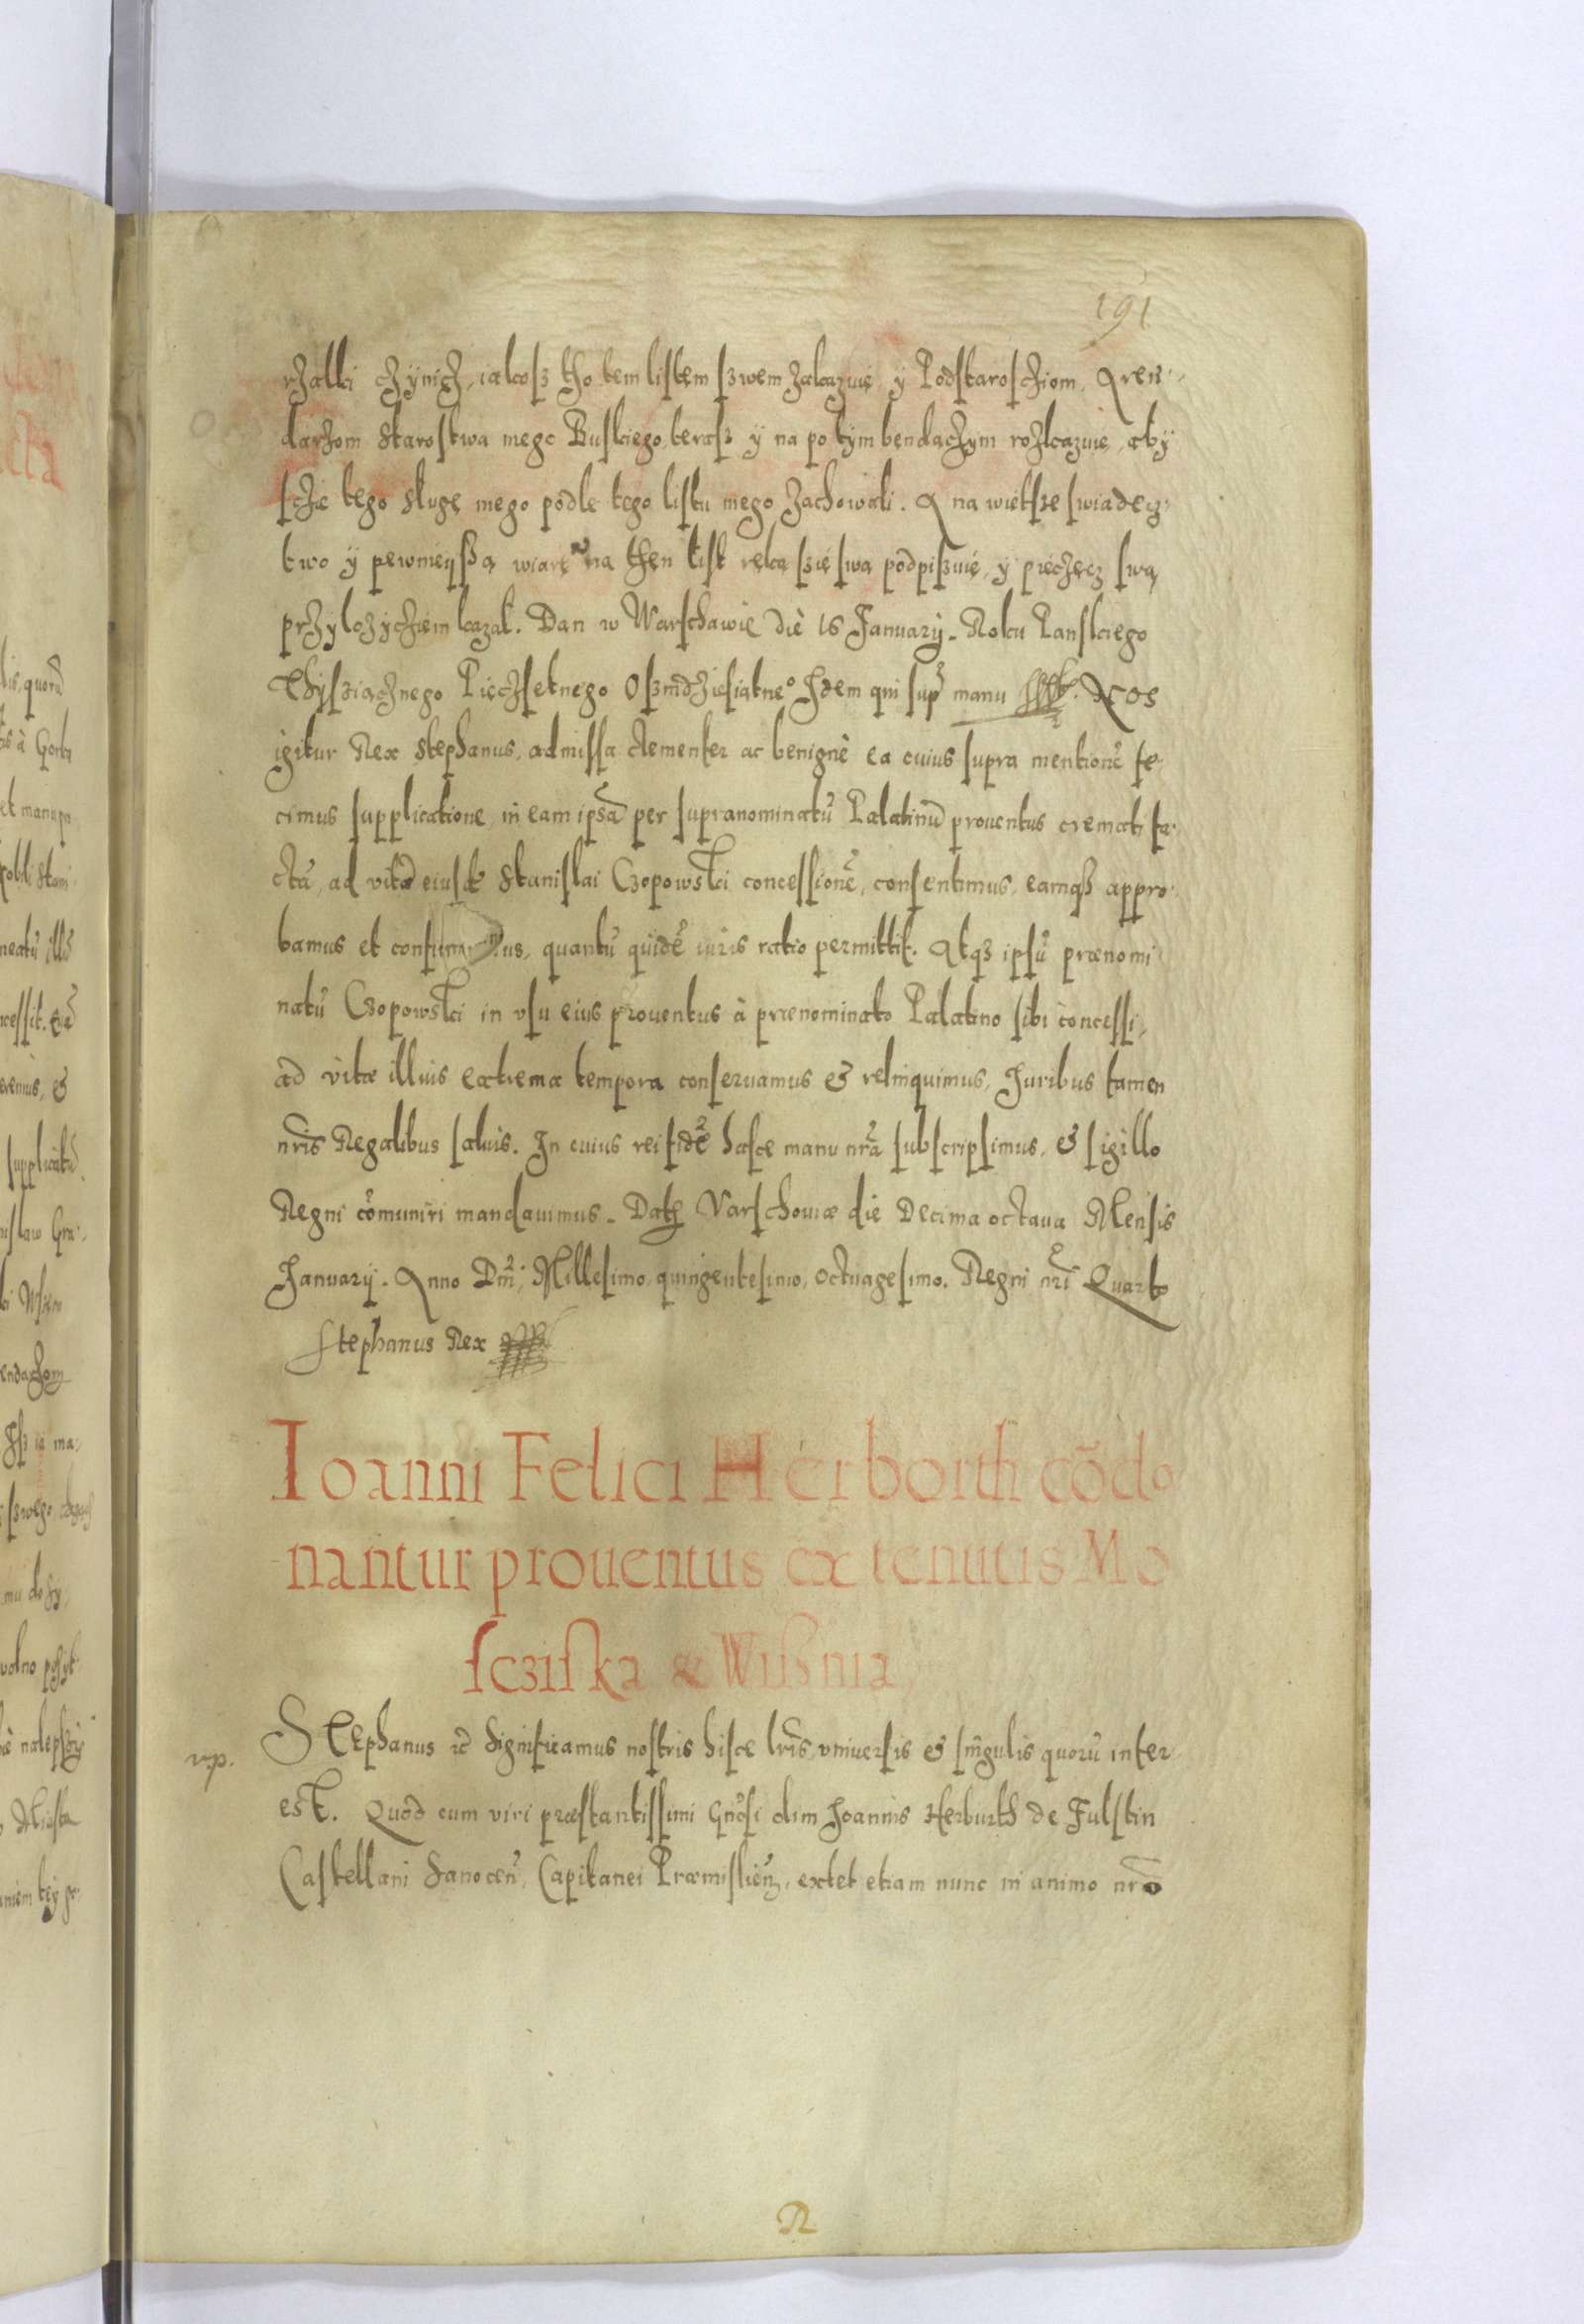 191
rzalki czynicz, iakosz tho tem listem szwem zakazuie y Podstaroscziom, Aren-
darzom Starostwa mego Buskiego, terasz y na po tym bendaczym rozkazuie, aby
sczie tego slugę mego podle tego listu mego zachowali. A na wietsze swiadecz-
two y pewnieyszą wiarę na then list ręką szię swą podpiszuię, y pieczęcz swą
przylozyczièm kazal. Dan w Warschawie die 16 January. Roku Panskiego
Thysziącznego Pięczsetnego Oszmdziesiątne° Idem qui sup manu sspt. Nos
igitur Rex Stephanus, admissa clementer ac benignè ea cuius supra mentionē fe-
cimus supplicatione, in eam ipsā per supranominatū Palatinū prouentus cremati fa-
ctā, ad vitā eiusdē Stanislai Czopowski concessionē, consentimus, eamqȝ appro-
bamus et confirmamus, quantū quidē iuris ratio permittit. Atqȝ ipsū prænomi-
natū Czopowski in vsu eius prouentus à prænominato Palatino sibi concessi,
ad vitæ illius extrema tempora conseruamus & relinquimus, Iuribus tamen
nrīs Regalibus saluis. In cuius rei fidē hasce manu nrā subscripsimus, & sigillo
Regni cōmuniri mandauimus. Datȝ Varschouiæ die Decima octaua Mensis
January. Anno Dni, Millesimo, quingentesimo, octuagesimo. Regni nrī Quarto
Stephanus Rex
Ioanni Felici Herborth cōdo
nantur prouentus ex tenutis Mo
scziska & Wisznia
vp.
Stephanus ꝛc̄ Significamus nostris hisce lrīs, vniuersis & singulis quorū inter-
est. Quod cum viri præstantissimi Gnōsi olim Ioannis Herburth de Fulstin
Castellani Sanocen̄, Capitanei Præmislien̄, extet etiam nunc in animo nrō
R